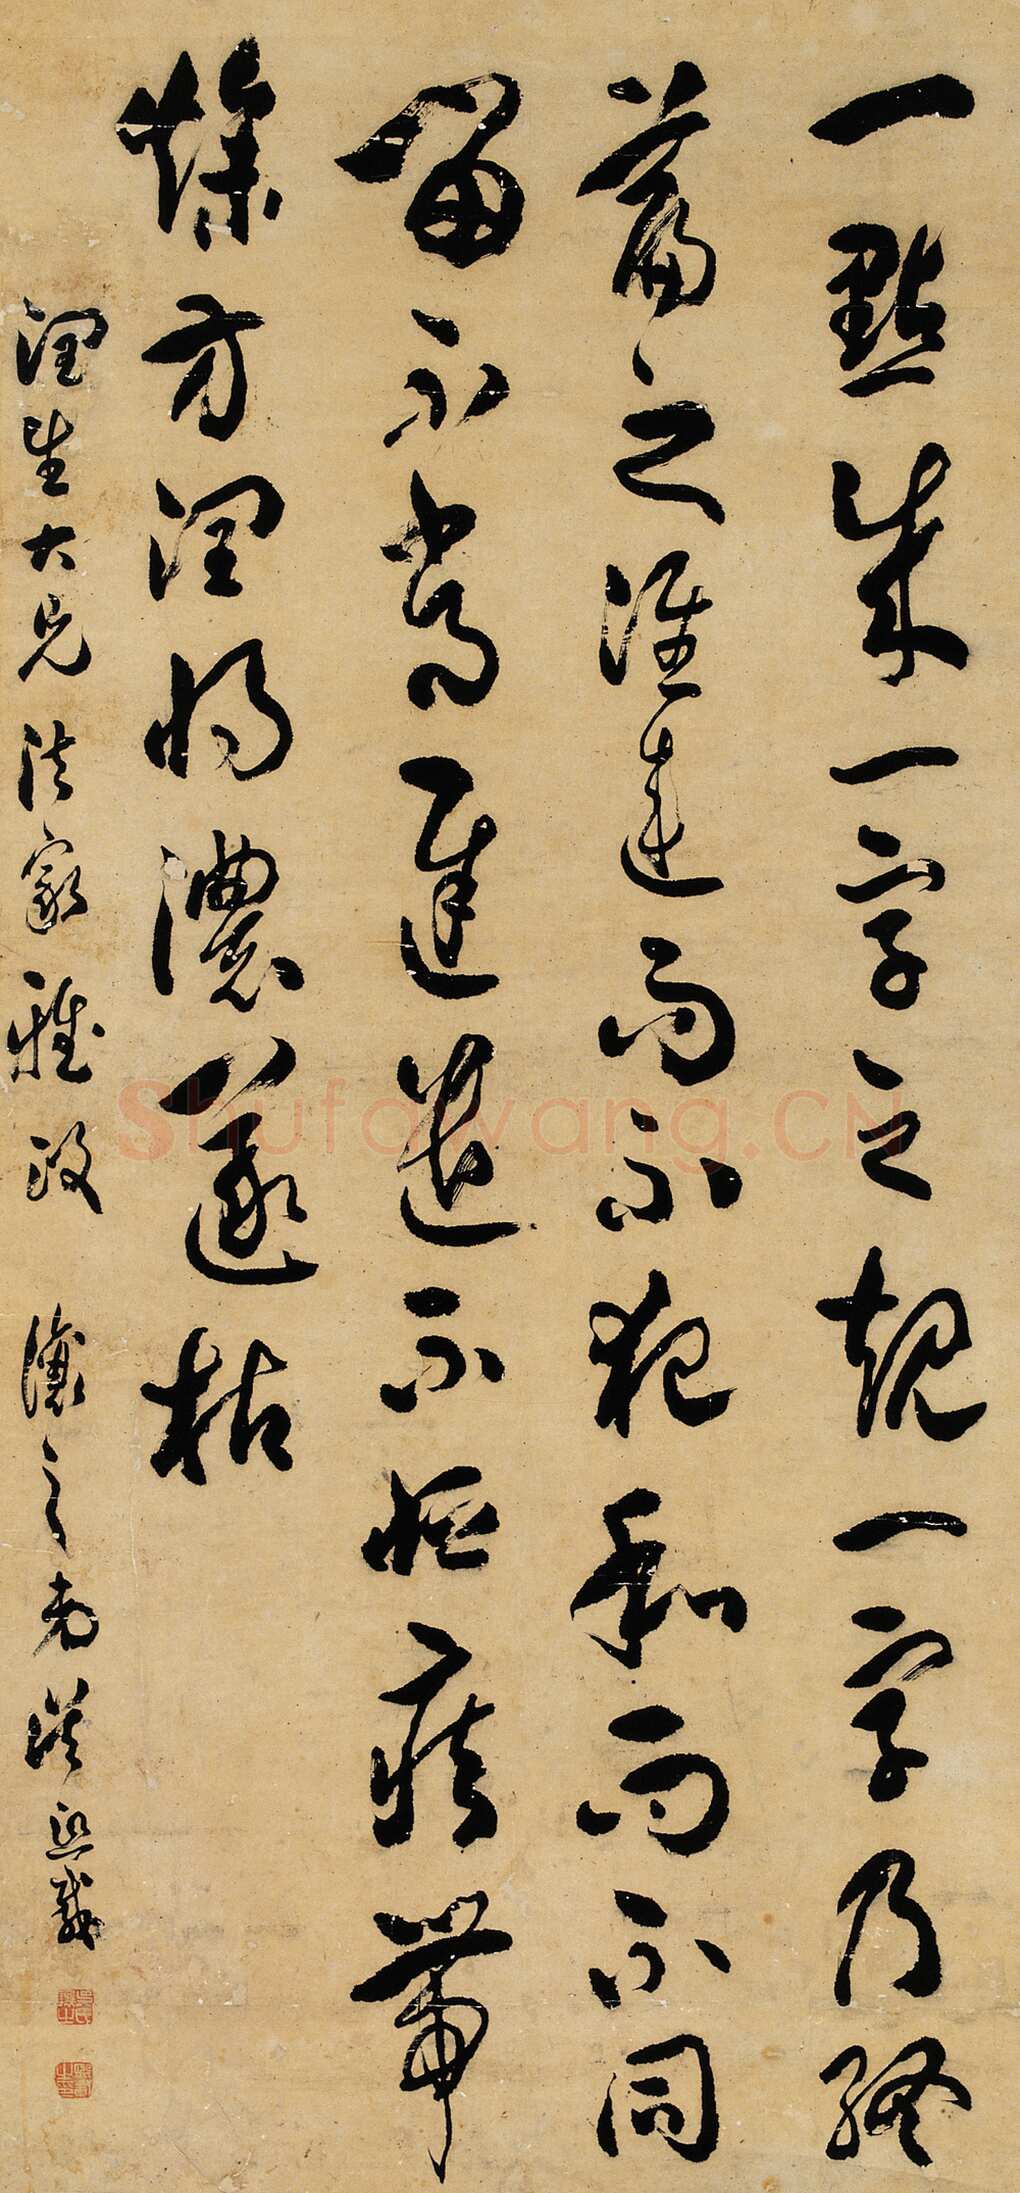 一點成一字之規一字乃終
篇之准違而不犯和而不同
留不常遲遣不恒疾帶
燥方潤將濃遂枯
潤生大兄法家雅政 讓之弟吳熙載
Shufawang.CN